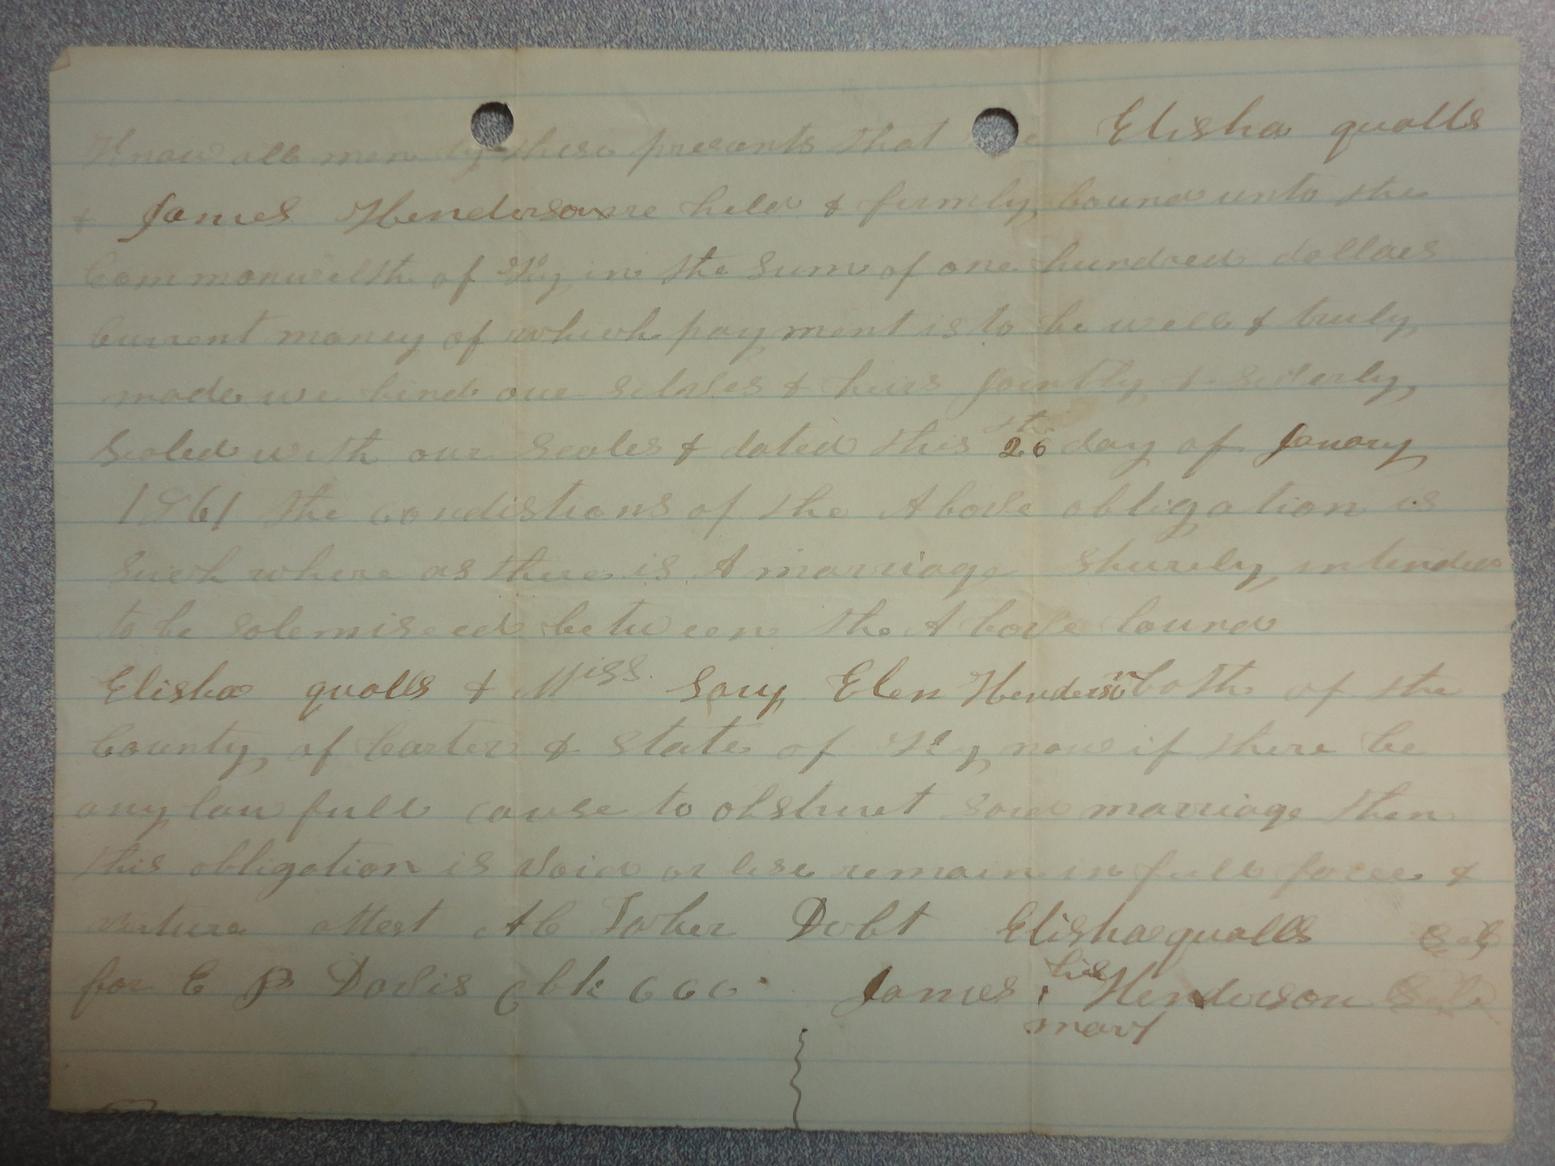 Know all men by these presents that e Elisha qualls
& James Henderson are held & firmly bound unto the
Commonwelth of Ky in the Sum of one hundred dollars
Current money of which payment is to be well & truly
made we bind our selves & hirs jointly & severly
Sealed with our Seales & dated this 26th day of Jenuary
1861 the condistions of the Above obligation is
Such where as there is A marriage shurely intended
to be solemiseed between the Above bound
Elisha qualls & Miss Sary Elen Henderson both of the
County of Carter & State of Ky now if there be
any law full cause to obstruct said marriage then
this obligation is void or else remain in full force &
virtue Attest Ab Dobt Elisha qualls Seal
for E B Davis Clk CCC James his Henderson Seal
mark